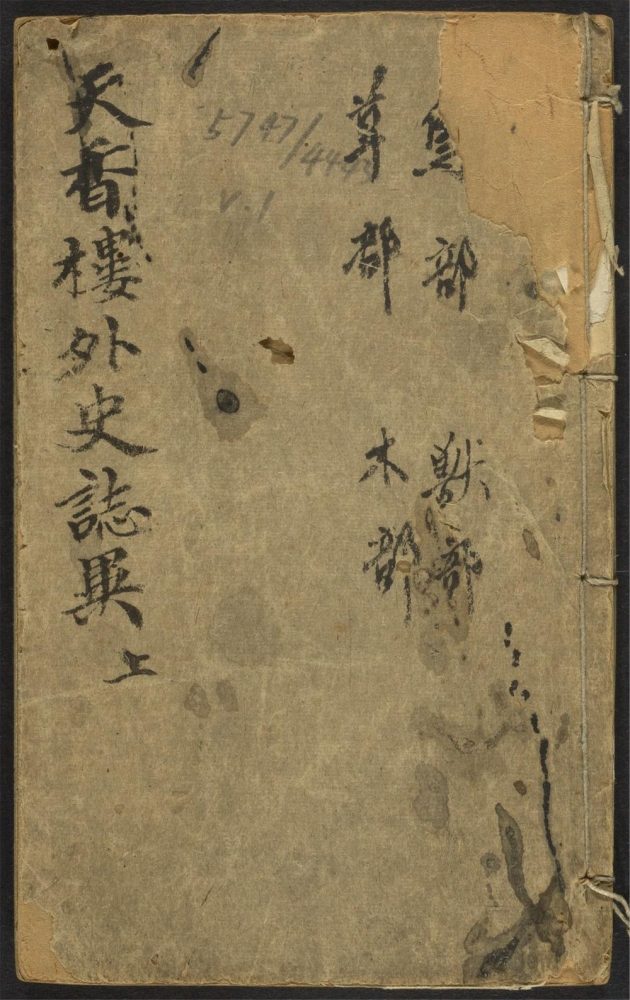 鳥部 獸部
草部 木部
v.1
天香樓外史誌異 上